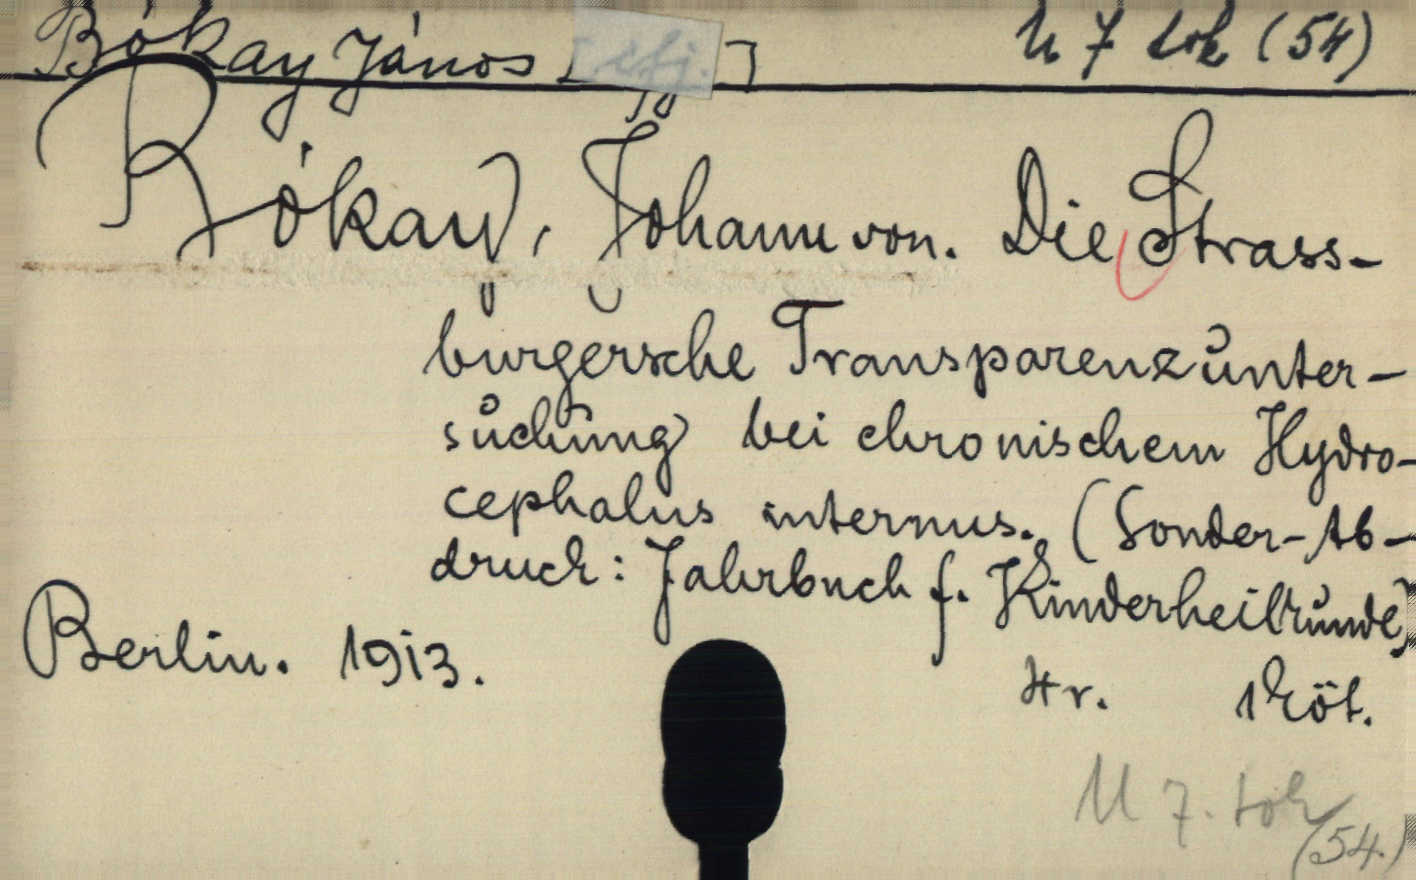 Bókay János [ifj.] U 7 tok (54)
Bókay, Johann von. Die Strass-
burgersche Transparenzunter-
suchung bei chronischem Hydro-
cephalus internus. (Sonder-Ab-
druck: Jahrbuch f. Kinderheilkunde)
Berlin. 1913.
4r. 1 köt.
U 7. tok
(54.)